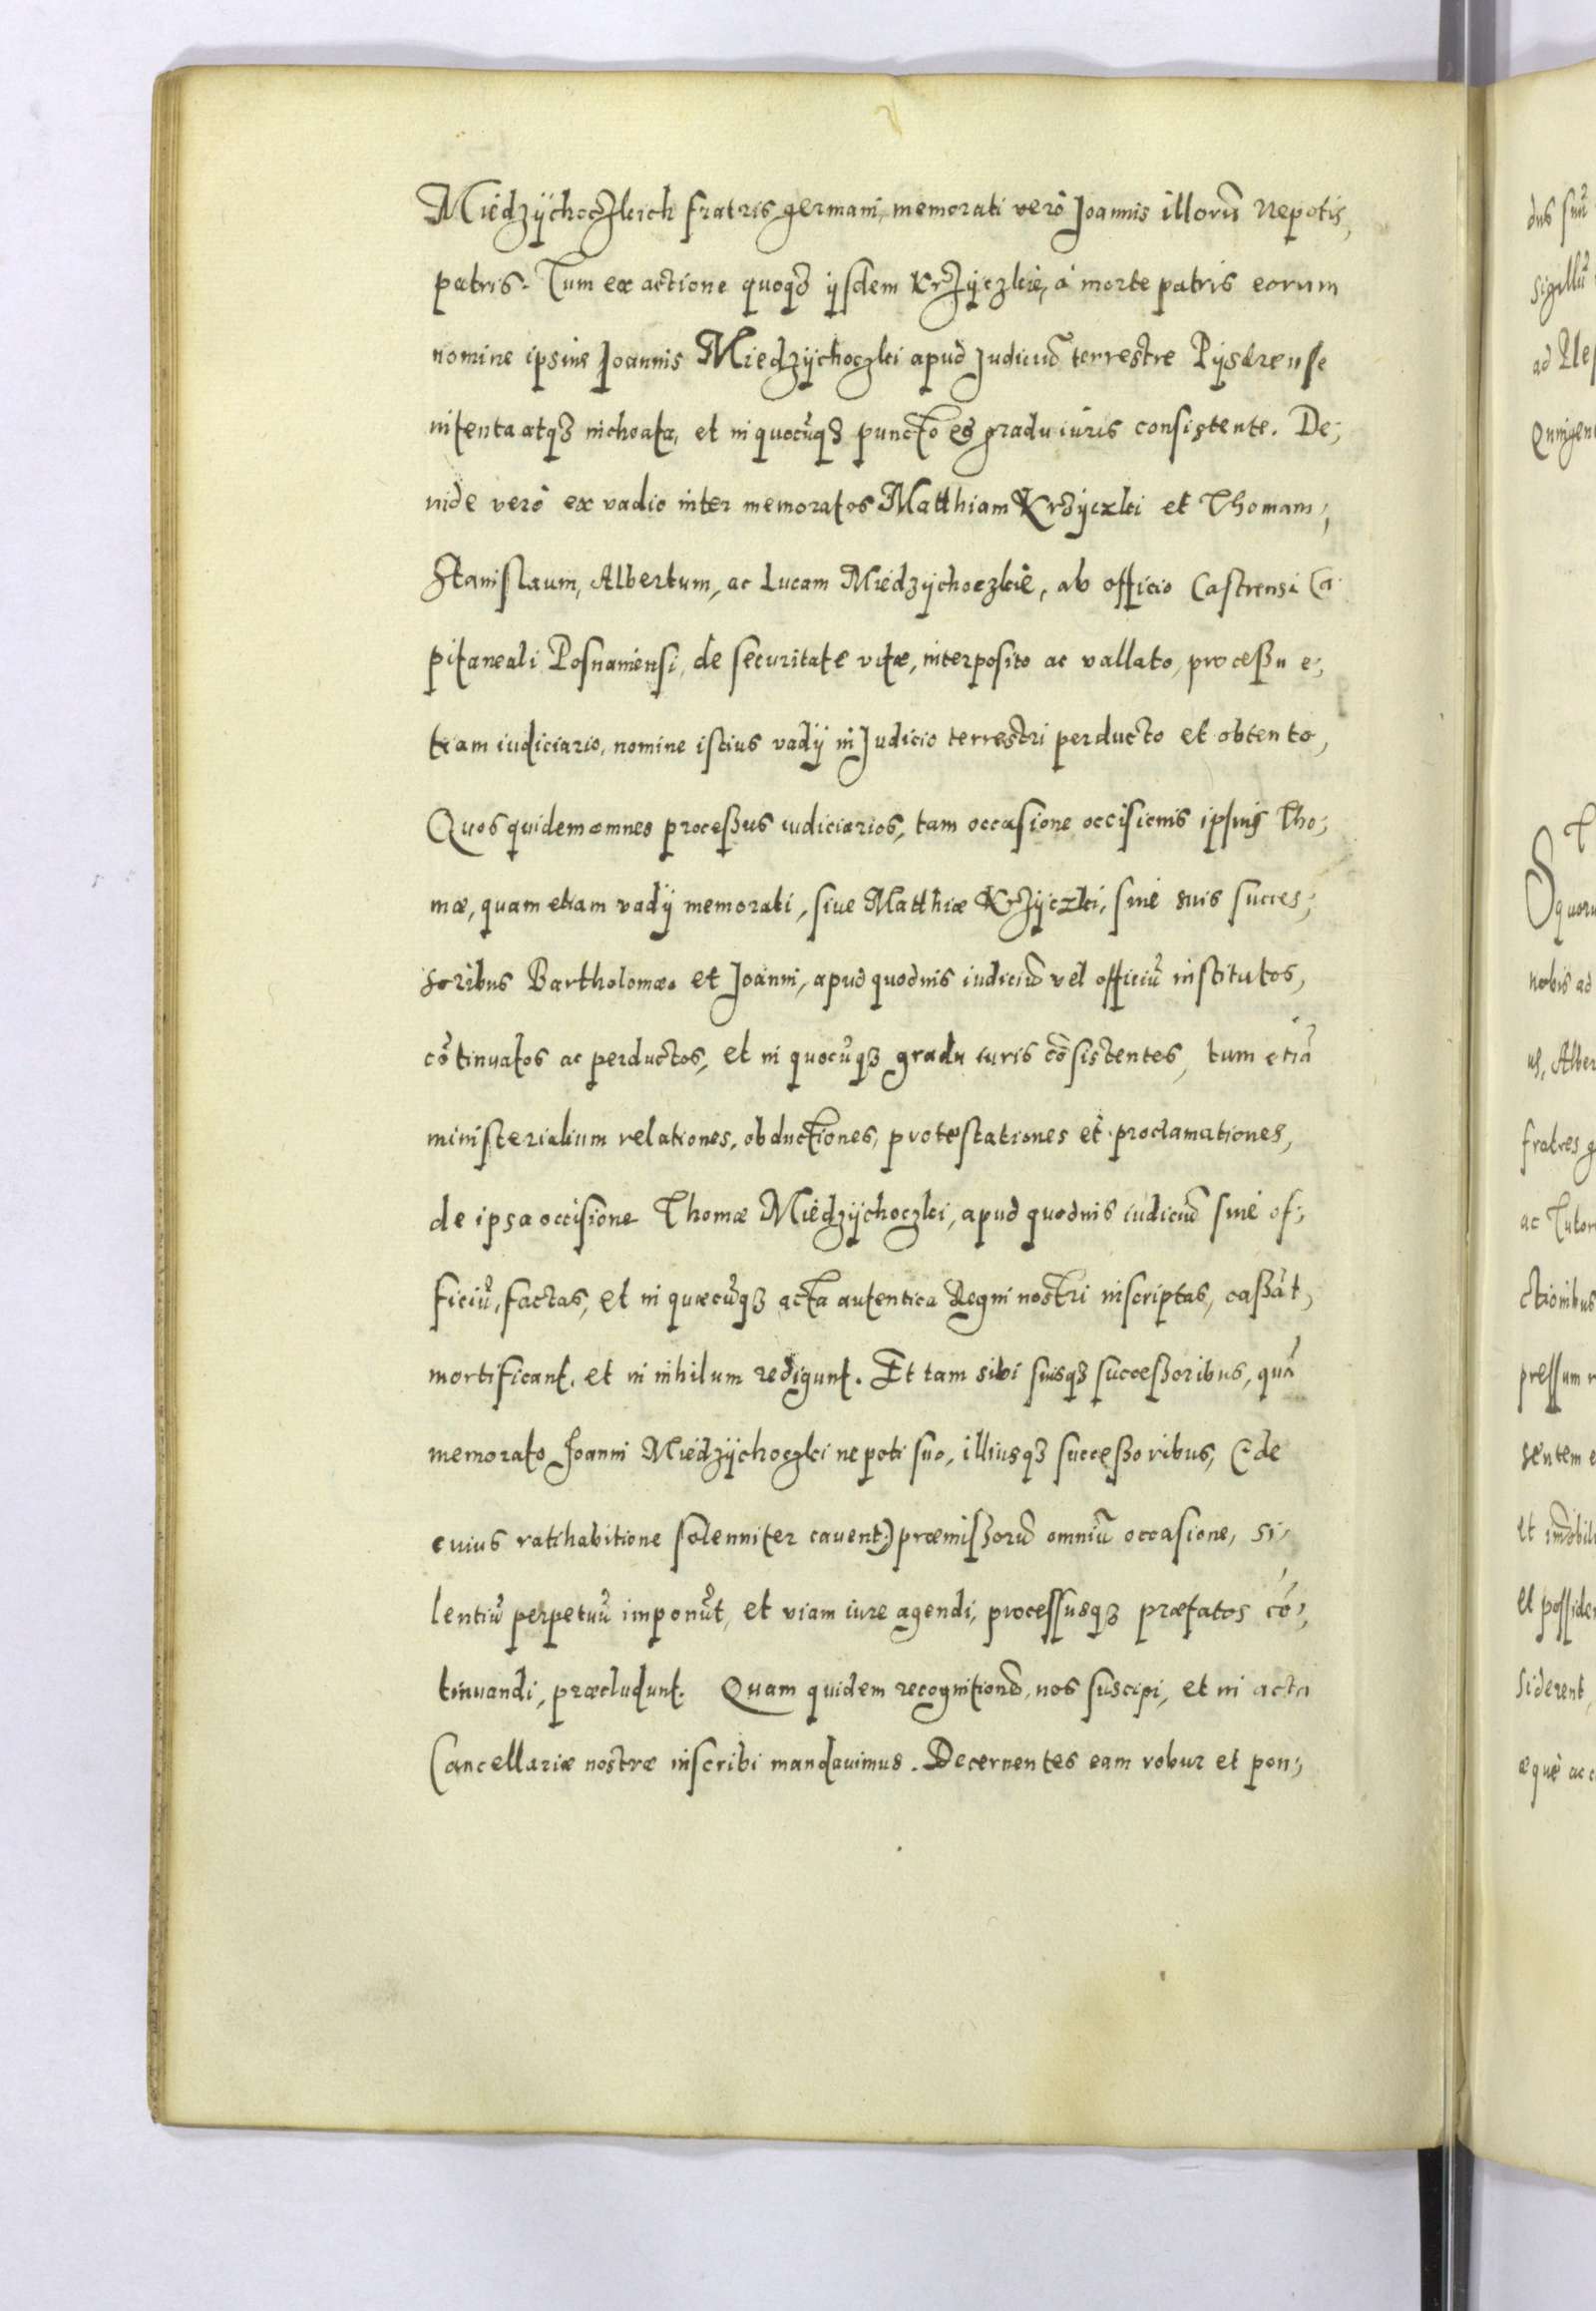 Miedzÿchoczkich fratris germani, memorati verò Joannis illorũ Nepotis,
patris. Tum ex actione quoqꝫ ijsdem Krzÿczkie, à morte patris eorum
nomine ipsius Joannis Miedzÿchoczki apud Judiciũ terrestre Pÿsdrense
intenta atqꝫ inchoata, et in quocũqꝫ puncto et gradu iuris consistente. De,
inde verò ex vadio inter memoratos Matthiam Krzÿczki et Thomam,
Stanislaum, Albertum, ac Lucam Miedzÿchoczkie, ab officio Castrensi Ca
pitaneali Posnaniensi, de securitate vitæ, interposito ac vallato, processu e,
tiam iudiciario, nomine istius vadÿ in Judicio terrestri perducto et obtento,
Quos quidem omnes processus iudiciarios, tam occasione occisionis ipsius Tho,
mæ, quam etiam vadÿ memorati, siue Matthiæ Krzÿczki, siue suis succes,
soribus Bartholomæo et Joanni, apud quoduis iudiciũ vel officiũ institutos,
cõtinuatos ac perductos, et in quocũqꝫ gradu iuris cõsistentes, tum etiã
ministerialium relationes, obductiones, protestationes et proclamationes,
de ipsa occisione Thomæ Miedzÿchoczki, apud quoduis iudiciũ siue of,
ficiũ, factas, et in quæcũqꝫ acta autentica Regni nostri inscriptas, cassãt,
mortificant, et in nihilum redigunt. Et tam sibi suisqꝫ successoribus, quã
memorato Joanni Miedzÿchoczki nepoti suo, illiusqꝫ successoribus, (de
cuius ratihabitione solenniter cauent) præmissorũ omniũ occasione, si,
lentiũ perpetuũ imponũt, et viam iure agendi, processusqꝫ præfatos cõ,
tinuandi, præcludunt. Quam quidem recognitionẽ, nos suscipi, et in acta
Cancellariæ nostræ inscribi mandauimus. Decernentes eam robur et pon,